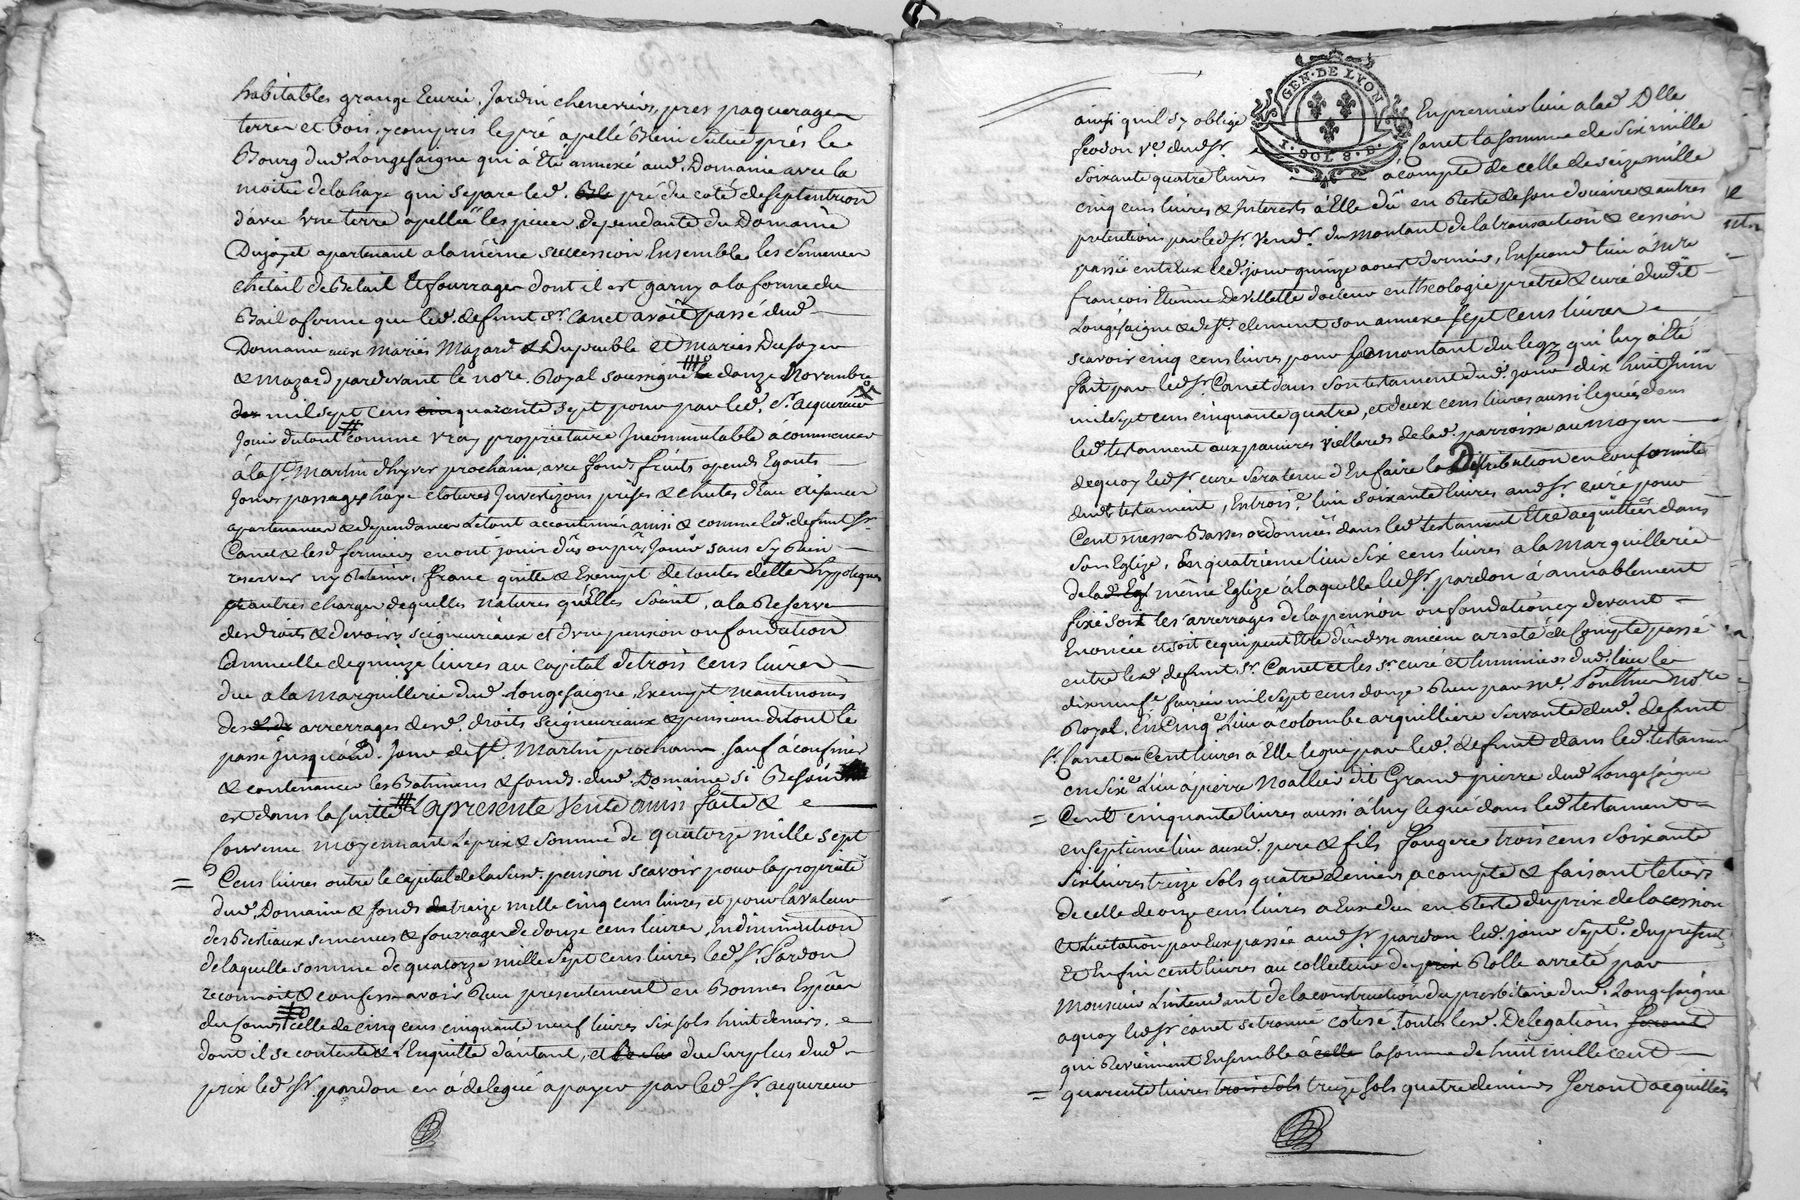 habitables grange Ecurie, Jardin chenevriers, prés paquerages
terres et bois, y compris le pré apellé Blein situé près le
Bourg dud. Longesaigne qui à Eté annexé aud. Domaine avec la
moitié de la haye qui separe led. pré du coté de septentrion
d'avec Une terre apellée les dependante du Domaine
Dujoyet apartenant a la même succession Ensemble les Semences
chetail de Betail Et fourrages dont il est garny a la forme du
Bail a ferme que led. defunt Sr. Canet avoit passé dud.
Domaine aux mariés Mazard & Dupuible et mariés Dufoyer
& Mazard pardevant le nore. Royal soussigné Le douze Novembre
mil sept cens quarante sept pour par led. Sr. acquereur
Jouir du tout comme vray proprietaire Incommutable à commencer
à la St. Martin d'hyver prochaine, avec fonds fruits
Jours passages haye clotures prises & chutes d'Eau aisances
apartenances & dependances Letout accoutumé ainsi & comme led. defunt Sr.
Canet & lesd. fermiers en ont joui dû ou pû Jouir sans Sy Rien
reserver ny Retenir, franc quitte & Exempt de toutes dettes hypoteques
et autres charges dequelles natures qu'Elles Soient, a la Reserve
des droits & devoirs seigneuriaux et d'une pension ou fondation
annuelle de quinze livres au capital de trois cens livres
due a la marguillerie dud. Longesaigne Exempt neantmoins
des arrerages desd. droits seigneuriaux & pension du tout le
passé jusqu'aud. Jour de St. Martin prochain sauf à confiner
& contenancer les Batimens & fonds dud. Domaine Si Besoin
est dans la suitte La presente Vente ainsi faite &
Convenue moyennant Le prix & Somme de quatorze mille sept
Cens livres outre le capital de la susd. pension scavoir pour la proprieté
dud. Domaine & fonds treize mille cinq cens livres et pour la valeur
des Bestiaux semences & fourrages de douze cens livres, En diminution
de laquelle somme de quatorze mille Sept cens livres led. Sr. Pardon
reconnoit & confesse avoir Reçu presentement en Bonnes Especes
du Cours celle de cinq cens cinquante neuf livres Six sols huit deniers.
dont il se contente & l'Enquitte d'autant, et du Surplus dud.
prix led. Sr. pardon en a delegué a payer par led. Sr. acquereur
GEN. DE LYON
1. SOL 8. D.
ainsi quil s'y oblige En premier lieu a lad. Dlle
feodon Ve. dud. Sr. Canet la somme de Six mille
Soixante quatre livres a compte de celle de Seize mille
cinq cens livres & Interests à Elle dû en Reste de son douaire & autres
pretentions par led. Sr. Vendr. du montant de la transaction & cession
passée entr'Eux led. jour quinze aoust dernier, En second lieu à Mre
françois Etienne DeVillette docteur en theologie pretre & curé dudit
Longesaigne & de St. clement son annexe Sept cens livres
scavoir cinq cens livres pour le montant du legs qui luy a Eté
fait par led. Sr. Canet dans son testament dud. jour dix huit Juin
mil Sept cens cinquante quatre, et deux cens livres aussi leguées dans
led. testament aux pauvres viellards de lad. parroisse au moyen
dequoy led. Sr. curé sera tenu d'En faire la Distribution en conformité
dudt. testament, En trois.e lieu soixante livres aud. Sr. curé pour
Cent messes Basses ordonnées dans led. testament Etre acquittées dans
Son Eglize, En quatrieme lieu Six cens livres a la Marguillerie
de la même Eglize à laquelle led. Sr. pardon à amiablement
fixé soit les arrerages de la pension ou fondation cy devant
Enoncée et soit ce qui peut Etre dû d'un ancien arreté de Compte passé
entre led. defunt Sr. Canet et les Sr. curé et luminiers dud. lieu le
dixneufe. fevrier mil Sept cens douze Reçu par me. Ponthus nore
Royal, En Cinqe. Lieu a colombe arquilliere servante dud. defunt
Sr. Canet Cent livres à Elle legué par led. defunt dans led. testament
en Sixe. Lieu à pierre Noallier dit Grand pierre dud. Longesaigne
Cent cinquante livres aussi à luy legué dans led. testament
en septieme lieu auxd. pere & fils fougere trois cens soixante
six livres treize Sols quatre deniers a compte & faisant le tiers
de celle de onze cens livres a Eux due en Reste du prix de la cession
& licitation par Eux passée aud. Sr. pardon led. jour Septe. du present
Et Enfin cent livres au collecteur du Rolle arreté par
Monsieur L'intendant de la construction du presbitaire dud. Longesaigne
a quoy led. Sr. canet se trouve cotisé, toutes lesd. Delegations
qui Reviennent Ensemble à la somme de huit mille cent
quarente livres treize sols quatre deniers Seront acquittées